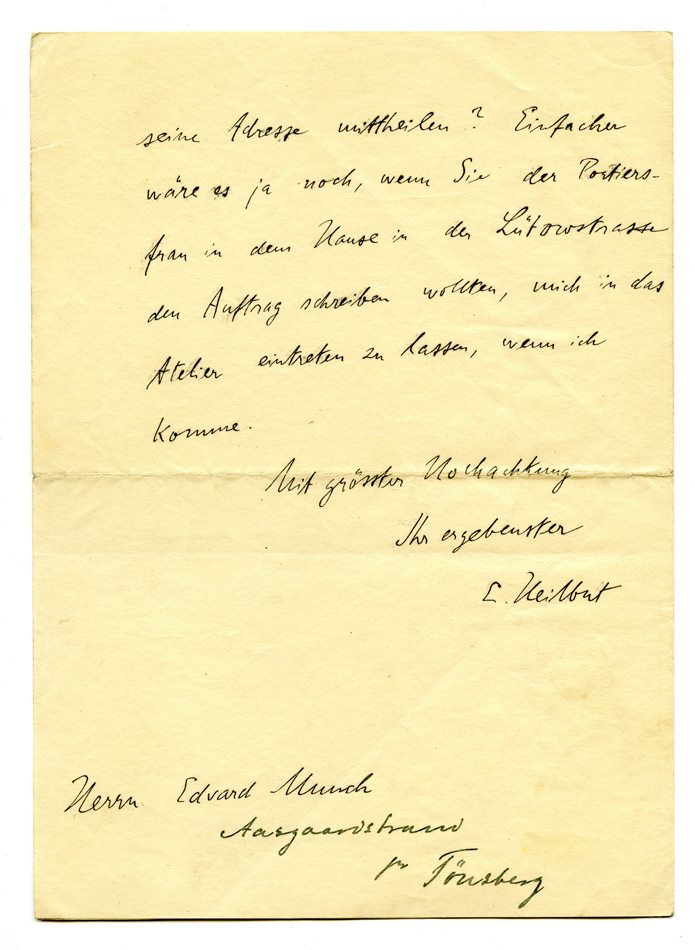 seine Adresse mittheilen? Einfacher
wäre es ja noch, wenn Sie der Portiers-
frau in dem Hause in der Lützowstrasse
den Auftrag schreiben wollten, mich in das
Atelier eintreten zu lassen, wenn ich
komme.
Mit grösster Hochachtung
Ihr ergebenster
E. Heilbut
Herrn Edvard Munch
Aasgaardstrand
pr Tönsberg